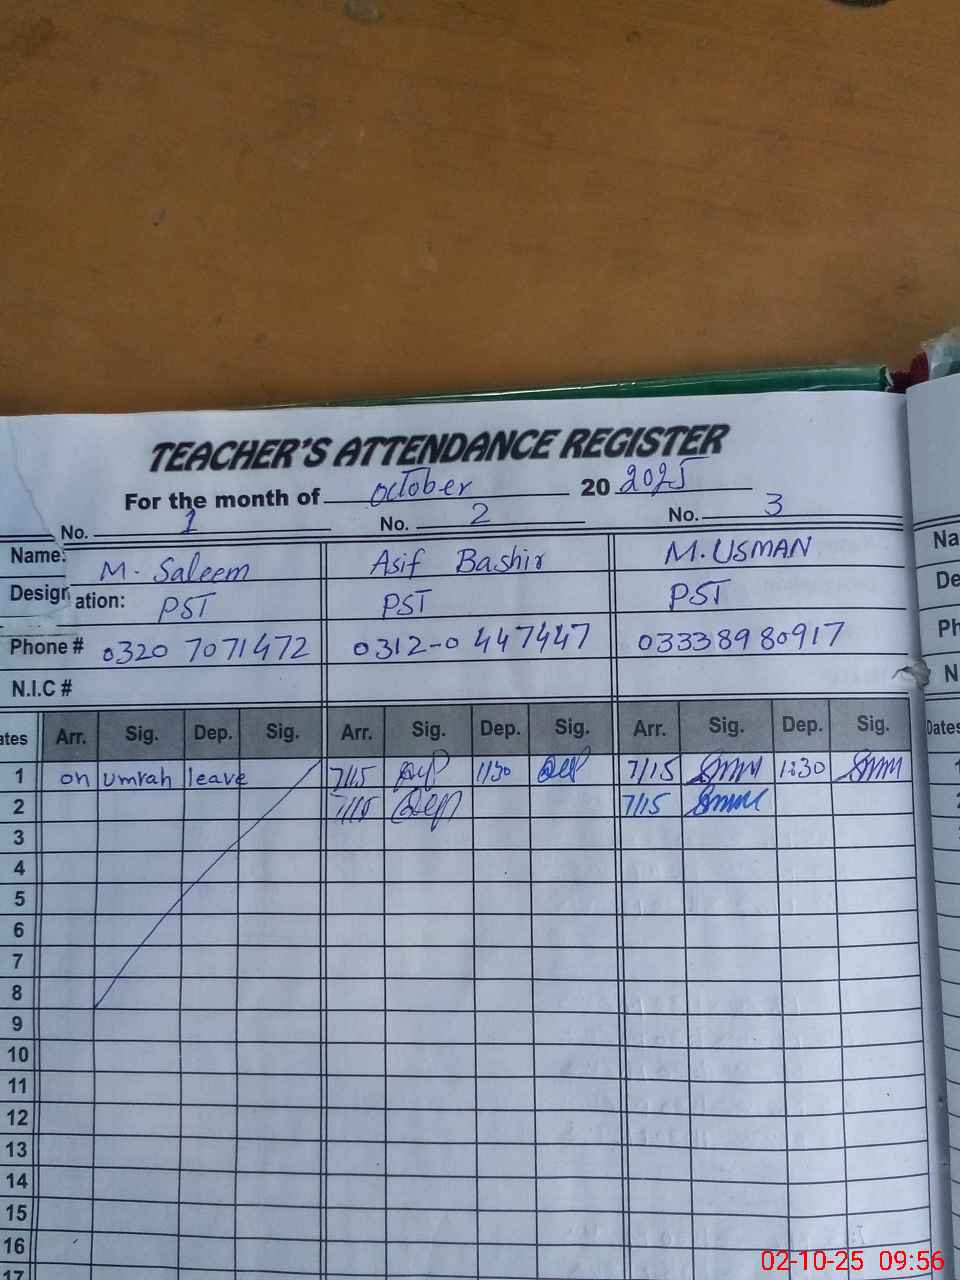 TEACHER'S ATTENDANCE REGISTER
For the month of october 20 2025
No. 1 No. 2 No. 3
Name: M. Saleem Asif Bashir M. USMAN Na
Design ation: PST PST PST De
Phone # 0320 7071472 0312-0 447447 03338980917 Ph
N.I.C # N
ates Arr. Sig. Dep. Sig. Arr. Sig. Dep. Sig. Arr. Sig. Dep. Sig. Dates
1 on umrah leave 7/15 1/30 7/15 1:30
2 7/15 7/15
3
4
5
6
7
8
9
10
11
12
13
14
15
16
17
02-10-25 09:56